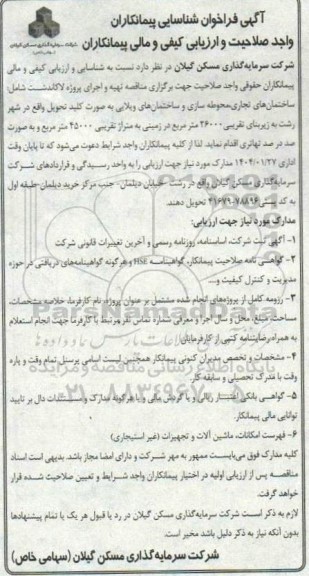 آگهی فراخوان شناسایی پیمانکاران
واجد صلاحیت و ارزیابی کیفی و مالی پیمانکاران
شرکت سرمایه‌گذاری مسکن گیلان در نظر دارد نسبت به شناسایی و ارزیابی کیفی و مالی
پیمانکاران حقوقی واجد صلاحیت جهت برگزاری مناقصه تهیه و اجرای پروژه لاکاندشت شامل:
ساختمان‌های تجاری،محوطه سازی و ساختمان‌های ویلایی به صورت کلید تحویل واقع در شهر
رشت به زیربنای تقریبی ۲۶۰۰۰ متر مربع در زمینی به متراژ تقریبی ۴۵۰۰۰ متر مربع و به صورت
صد در صد تهاتری اقدام نماید. لذا از کلیه پیمانکاران واجد شرایط دعوت می‌شود که تا پایان وقت
اداری ۱۴۰۴/۰۱/۲۷ مدارک مورد نیاز جهت ارزیابی را به واحد رسیدگی و قراردادهای شرکت
سرمایه‌گذاری مسکن گیلان واقع در رشت خیابان دیلمان- جنب مرکز خرید دیلمان-طبقه اول
به کد پستی ۷۸۸۹۶-۴۱۶۷۹ تحویل دهند.
مدارک مورد نیاز جهت ارزیابی:
۱- آگهی ثبت شرکت، اساسنامه، روزنامه رسمی و آخرین تغییرات قانونی شرکت
۲- گواهی نامه صلاحیت پیمانکار، گواهینامه HSE و هرگونه گواهینامه‌های دریافتی در حوزه
مدیریت و کنترل کیفیت و...
۳- رزومه کامل از پروژه‌های انجام شده مشتمل بر عنوان پروژه، نام کارفرما، خلاصه مشخصات،
مساحت، مبلغ، محل و سال اجرا و معرفی شماره تماس نفر مرتبط با کارفرما جهت انجام استعلام
به همراه رضایتنامه کتبی از کارفرمایان
۴- مشخصات و تخصص مدیران کنونی پیمانکار همچنین لیست اسامی پرسنل تمام وقت و پاره
وقت با مدرک تحصیلی و سابقه کار.
۵- گواهی بانکی اعتبار ریالی و یا گردش مالی و یا هرگونه مدارک و مستندات دال بر تایید
توانایی مالی پیمانکار.
۶- فهرست امکانات، ماشین آلات و تجهیزات (غیر استیجاری)
کلیه مدارک فوق می‌بایست ممهور به مهر شرکت و دارای امضا مجاز باشد. بدیهی است اسناد
مناقصه پس از ارزیابی اولیه در اختیار پیمانکاران واجد شرایط و تعیین صلاحیت شده قرار
خواهد گرفت.
لازم به ذکر است شرکت سرمایه‌گذاری مسکن گیلان در رد یا قبول هر یک یا تمام پیشنهادها
بدون آنکه نیاز به ذکر دلیل باشد مخیر است.
شرکت سرمایه‌گذاری مسکن گیلان (سهامی خاص)
ParsNamadData
پایگاه اطلاع رسانی مناقصه و مزایده
۰۲۱-۸۸۳۴۹۶۷۰